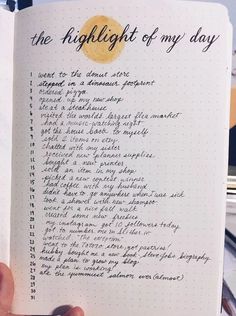 the highlight of my day
1 went to the donut store
2 stepped in a dinosaur footprint
3 ordered pizza
4 opened up my new shop
5 ate at a steakhouse
6 visited the worlds largest flea market
7 had a movie-watching night
8 got the house back to myself
9 sold 2 items on etsy
10 chatted with my sister
11 received new planner supplies
12 bought a new printer
13 sold an item in my shop
14 picked a new contest winner
15 had coffee with my husband
16 didn't have to go anywhere when I was sick
17 took a shower with new shampoo
18 went for a nice fall walk
19 created some new freebies
20 my instagram got 10 followers today
21 got to number one in slither.io
22 watched "The exception"
23 went to the store, got pastries!
24 hubby bought me a new book, Steve Jobs biography
25 made a plan to grow my blog
26 my plan is working!
27 ate the yummiest salmon ever (almost)
28
29
30
31